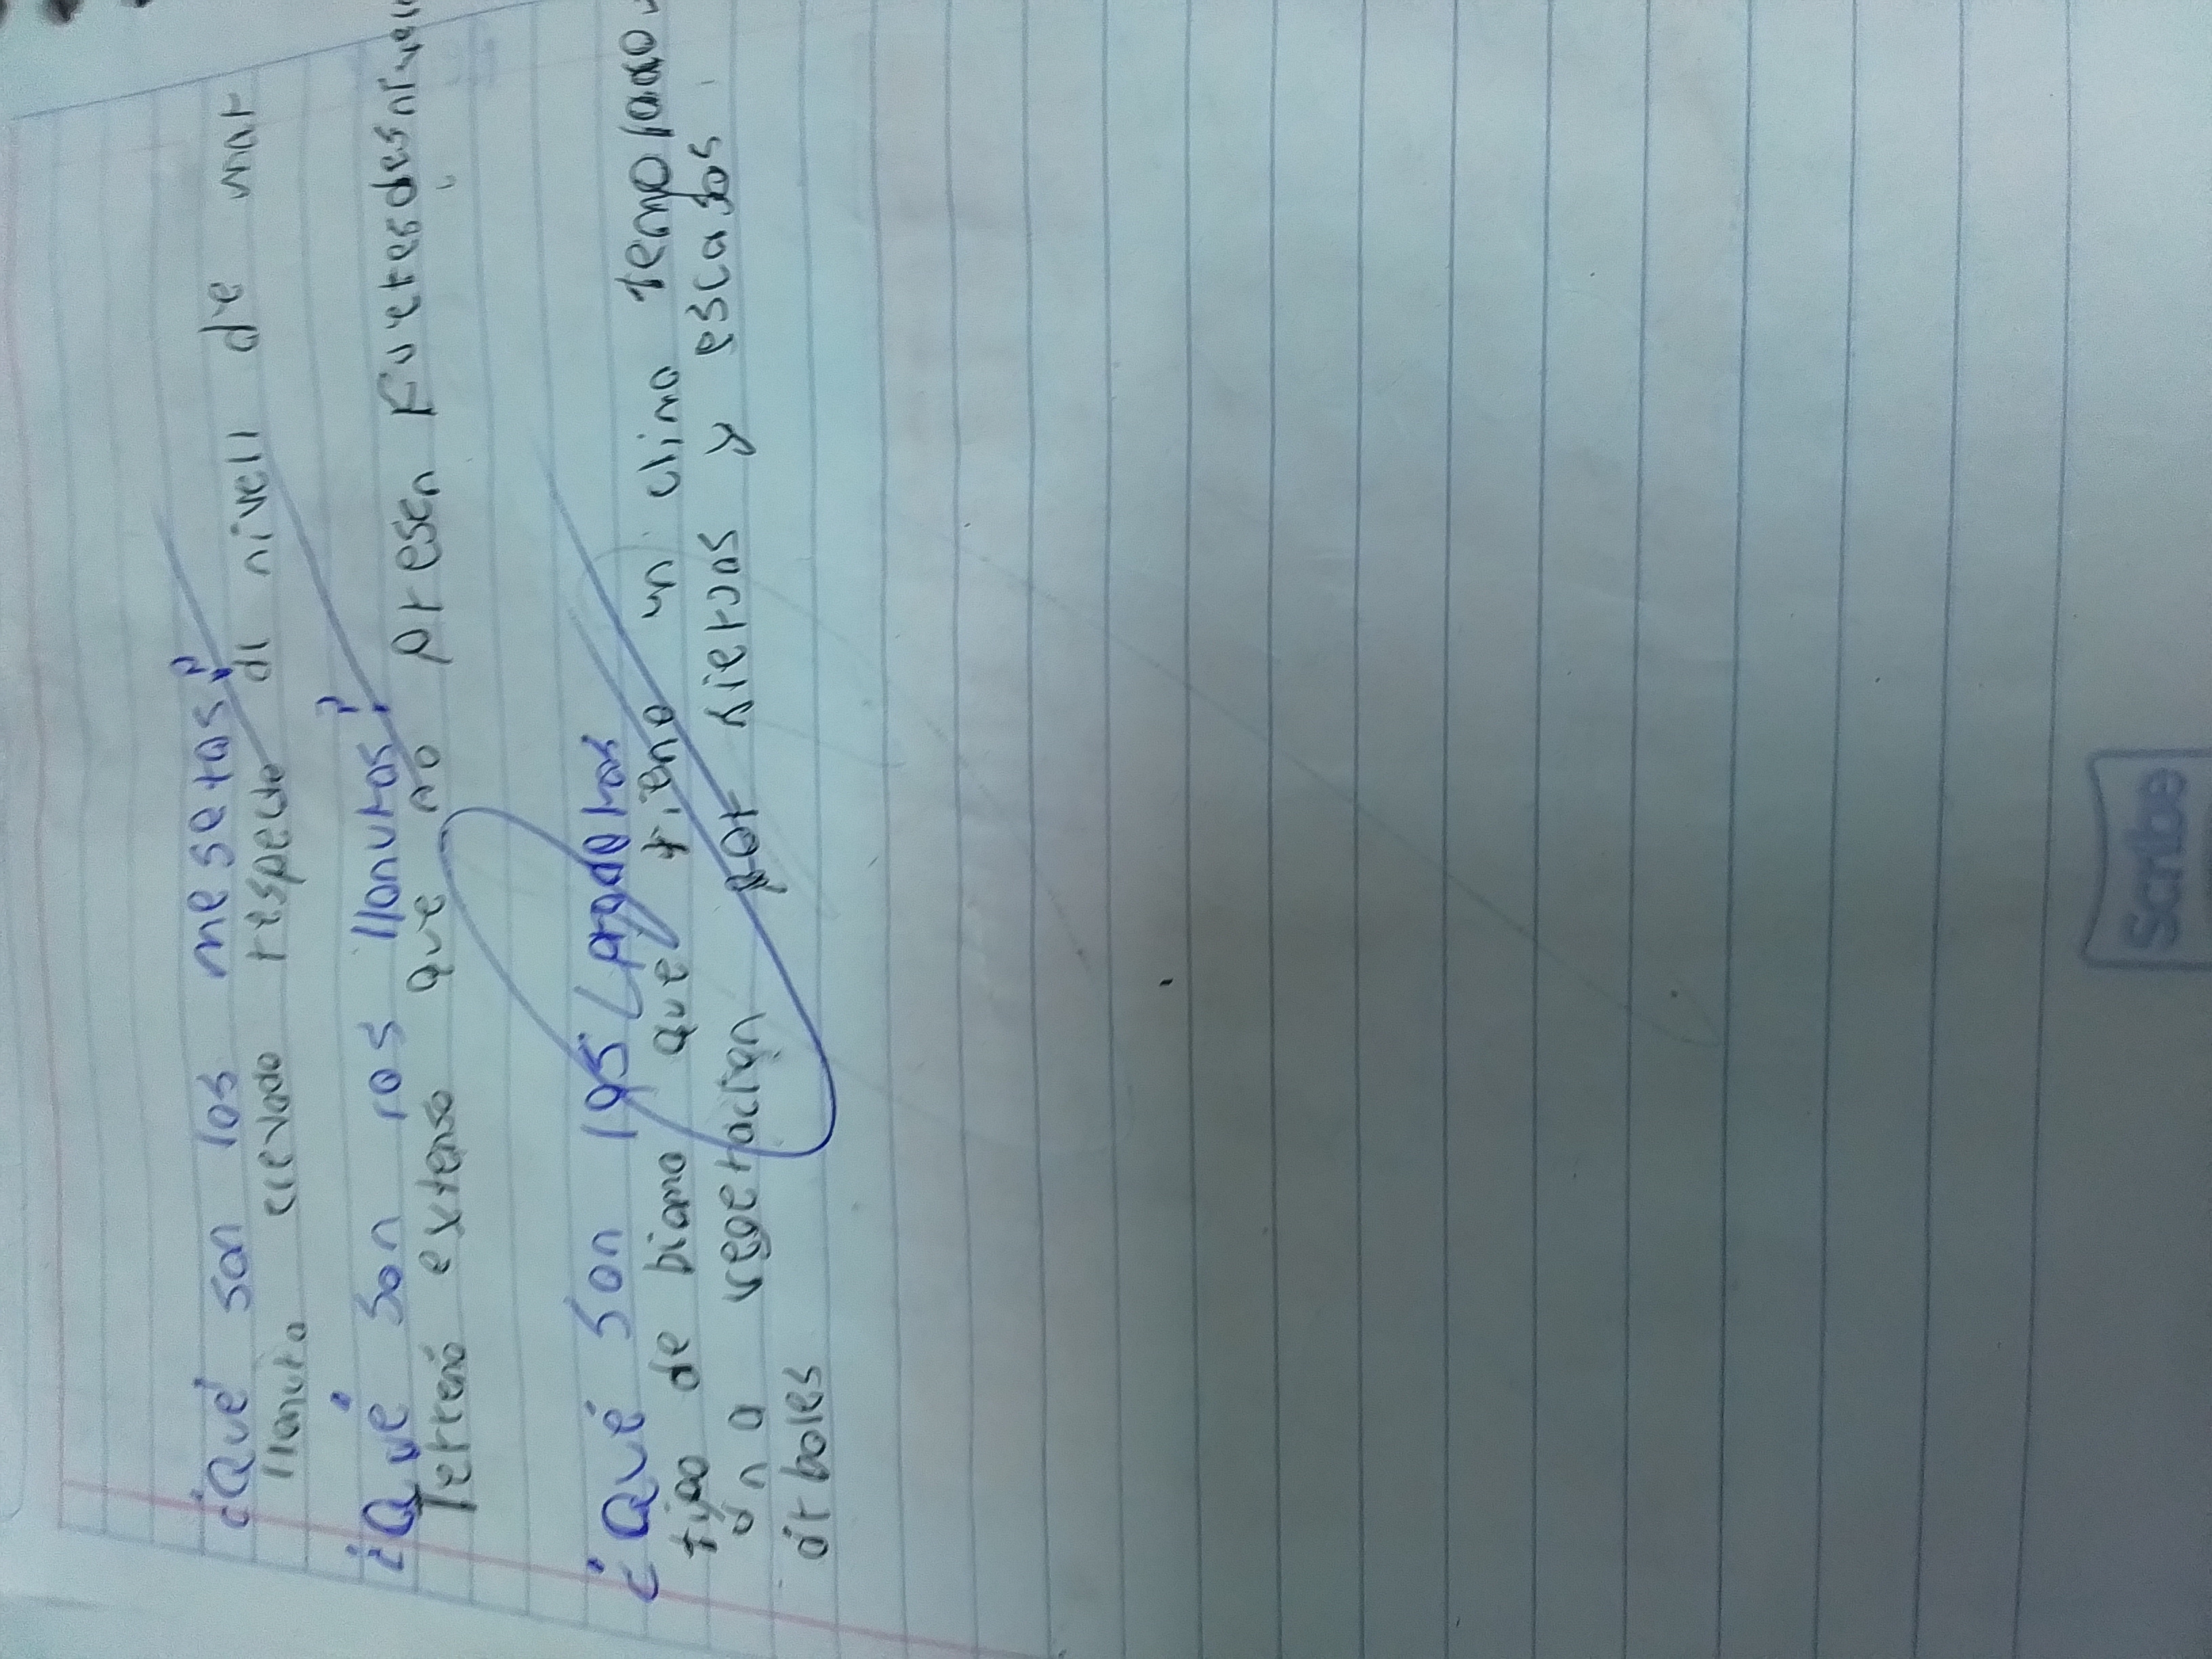 ¿Qué son las mesetas?
llanura elevado respecto al nivell de mar
¿Qué son las llanuras?
Terreno extenso que no presen Fuertesdesnivel
¿Qué son las praderas
tipo de biamo que tiene un clima templado
una vegetacion por hierbas y escasos
árboles
Scribe